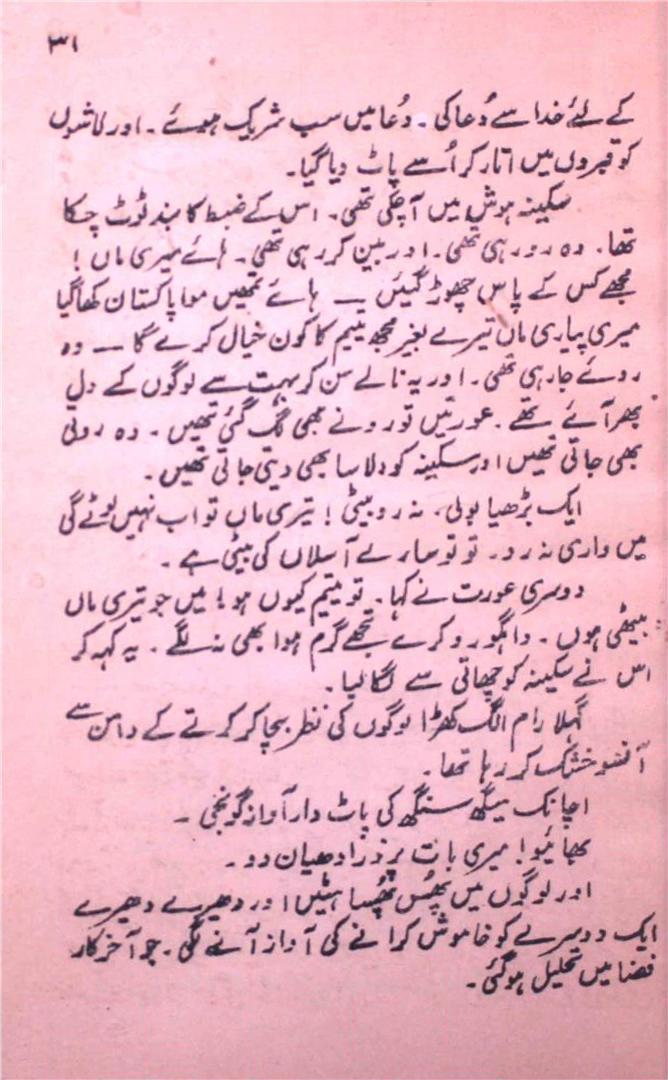 ۳۱
کے لئے خدا سے دُعا کی۔ دُعا میں سب شریک ہوئے۔ اور لاشوں
کو قبروں میں اتار کر اُسے پاٹ دیا گیا۔
سکینہ ہوش میں آ چکی تھی۔ اس کے ضبط کا بند ٹوٹ چکا
تھا۔ وہ رو رہی تھی۔ اور بین کر رہی تھی۔ ہائے میری ماں !
مجھے کس کے پاس چھوڑ گئیں — ہائے تمھیں موا پاکستان کھا گیا
میری پیاری ماں تیرے بغیر مجھ یتیم کا کون خیال کرے گا — وہ
روئے جا رہی تھی۔ اور یہ نالے سن کر بہت سے لوگوں کے دل
بھر آئے تھے۔ عورتیں تو رونے بھی لگ گئی تھیں۔ وہ روتی
بھی جاتی تھیں اور سکینہ کو دلاسا بھی دیتی جاتی تھیں۔
ایک بڑھیا بولی۔ نہ رو بیٹی ! تیری ماں تو اب نہیں لوٹے گی
میں واری نہ رو۔ تو تو سارے آسلاں کی بیٹی ہے۔
دوسری عورت نے کہا۔ تو یتیم کیوں ہو! میں جو تیری ماں
بیٹھی ہوں۔ واہگورو کرے تجھے گرم ہوا بھی نہ لگے۔ یہ کہہ کر
اس نے سکینہ کو چھاتی سے لگا لیا۔
گہلا رام الگ کھڑا لوگوں کی نظر بچا کر کرتے کے دامن سے
آنسو خشک کر رہا تھا۔
اچانک میگھ سنگھ کی پاٹ دار آواز گونجی۔
بھائیو! میری بات پر ذرا دھیان دو۔
اور لوگوں میں پھُس پھُساہٹیں اور دھیرے دھیرے
ایک دوسرے کو خاموش کرانے کی آواز آنے لگی۔ جو آخر کار
فضا میں تحلیل ہو گئی۔